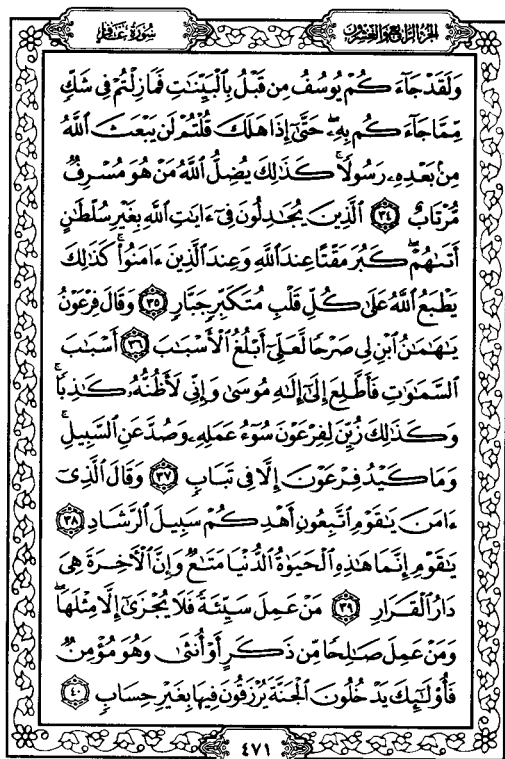 الجزء الرابع والعشرون
سورة غافر
وَلَقَدْ جَآءَكُمْ يُوسُفُ مِن قَبْلُ بِٱلْبَيِّنَٰتِ فَمَا زِلْتُمْ فِى شَكٍّ
مِّمَّا جَآءَكُم بِهِۦۖ حَتَّىٰٓ إِذَا هَلَكَ قُلْتُمْ لَن يَبْعَثَ ٱللَّهُ
مِنۢ بَعْدِهِۦ رَسُولًاۚ كَذَٰلِكَ يُضِلُّ ٱللَّهُ مَنْ هُوَ مُسْرِفٌ
مُّرْتَابٌ ٣٤ ٱلَّذِينَ يُجَٰدِلُونَ فِىٓ ءَايَٰتِ ٱللَّهِ بِغَيْرِ سُلْطَٰنٍ
أَتَىٰهُمْۖ كَبُرَ مَقْتًا عِندَ ٱللَّهِ وَعِندَ ٱلَّذِينَ ءَامَنُوا۟ۚ كَذَٰلِكَ
يَطْبَعُ ٱللَّهُ عَلَىٰ كُلِّ قَلْبِ مُتَكَبِّرٍ جَبَّارٍ ٣٥ وَقَالَ فِرْعَوْنُ
يَٰهَٰمَٰنُ ٱبْنِ لِى صَرْحًا لَّعَلِّىٓ أَبْلُغُ ٱلْأَسْبَٰبَ ٣٦ أَسْبَٰبَ
ٱلسَّمَٰوَٰتِ فَأَطَّلِعَ إِلَىٰٓ إِلَٰهِ مُوسَىٰ وَإِنِّى لَأَظُنُّهُۥ كَٰذِبًاۚ
وَكَذَٰلِكَ زُيِّنَ لِفِرْعَوْنَ سُوٓءُ عَمَلِهِۦ وَصُدَّ عَنِ ٱلسَّبِيلِۚ
وَمَا كَيْدُ فِرْعَوْنَ إِلَّا فِى تَبَابٍ ٣٧ وَقَالَ ٱلَّذِىٓ
ءَامَنَ يَٰقَوْمِ ٱتَّبِعُونِ أَهْدِكُمْ سَبِيلَ ٱلرَّشَادِ ٣٨
يَٰقَوْمِ إِنَّمَا هَٰذِهِ ٱلْحَيَوٰةُ ٱلدُّنْيَا مَتَٰعٌ وَإِنَّ ٱلْءَاخِرَةَ هِىَ
دَارُ ٱلْقَرَارِ ٣٩ مَنْ عَمِلَ سَيِّئَةً فَلَا يُجْزَىٰٓ إِلَّا مِثْلَهَاۖ
وَمَنْ عَمِلَ صَٰلِحًا مِّن ذَكَرٍ أَوْ أُنثَىٰ وَهُوَ مُؤْمِنٌ
فَأُو۟لَٰٓئِكَ يَدْخُلُونَ ٱلْجَنَّةَ يُرْزَقُونَ فِيهَا بِغَيْرِ حِسَابٍ ٤٠
٤٧١